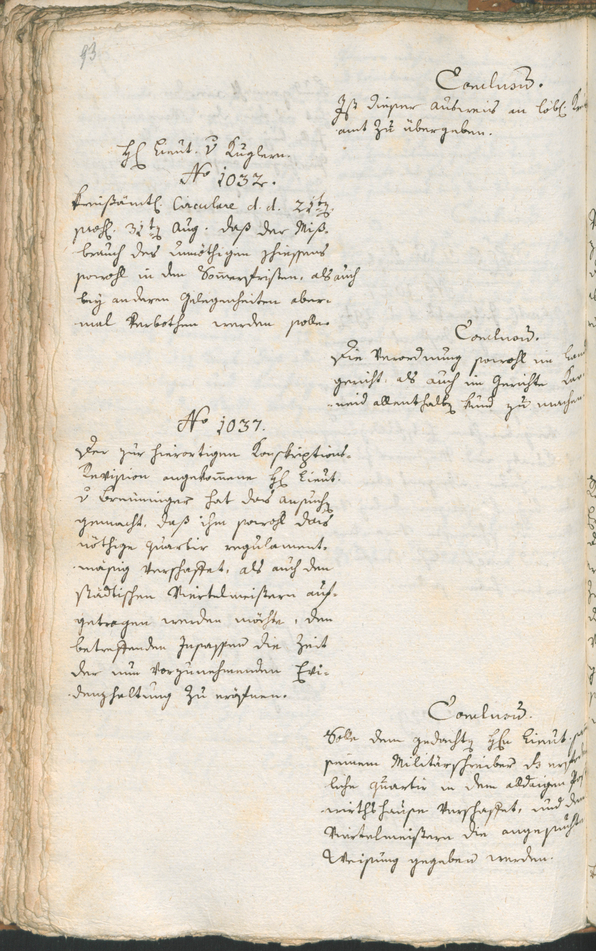 93
Conclusum.
Ist dieser Ausweis an löbl.
amt zu übergeben.
H. Lieut. v Kuglern.
No 1032.
Kreisämtl. Circulare d. d. 21ten
praes. 31ten Aug: daß der Miß-
brauch des unnöthigen Schiessens
sowohl in den Sommerfristen, als auch
bey anderen Gelegenheiten aber-
mal verbothen werden solle.
Conclusum.
Die Verordnung sowohl im
gericht, als auch im Gerichte
neid allenthalben kund zu machen
No 1037.
Der zur hierortigen Konskriptions-
Revision angekommene H. Lieut.
v Breuninger hat das Ansuchen
gemacht, daß ihm sowohl das
nöthige Quartir regulament-
mäßig verschaffet, als auch den
städtischen Viertelmeistern auf-
getragen werden möchte, den
betreffenden Insassen die Zeit
der nun vorzunehmenden Evi-
denzhaltung zu eröfnen.
Conclusum.
Solle dem gedachten Hn Lieut.
seinem Militärschreiber
liche Quartir in dem alldaigen
wirthshause verschaffet, und den
Viertelmeistern die angesuchte
Weisung gegeben werden.